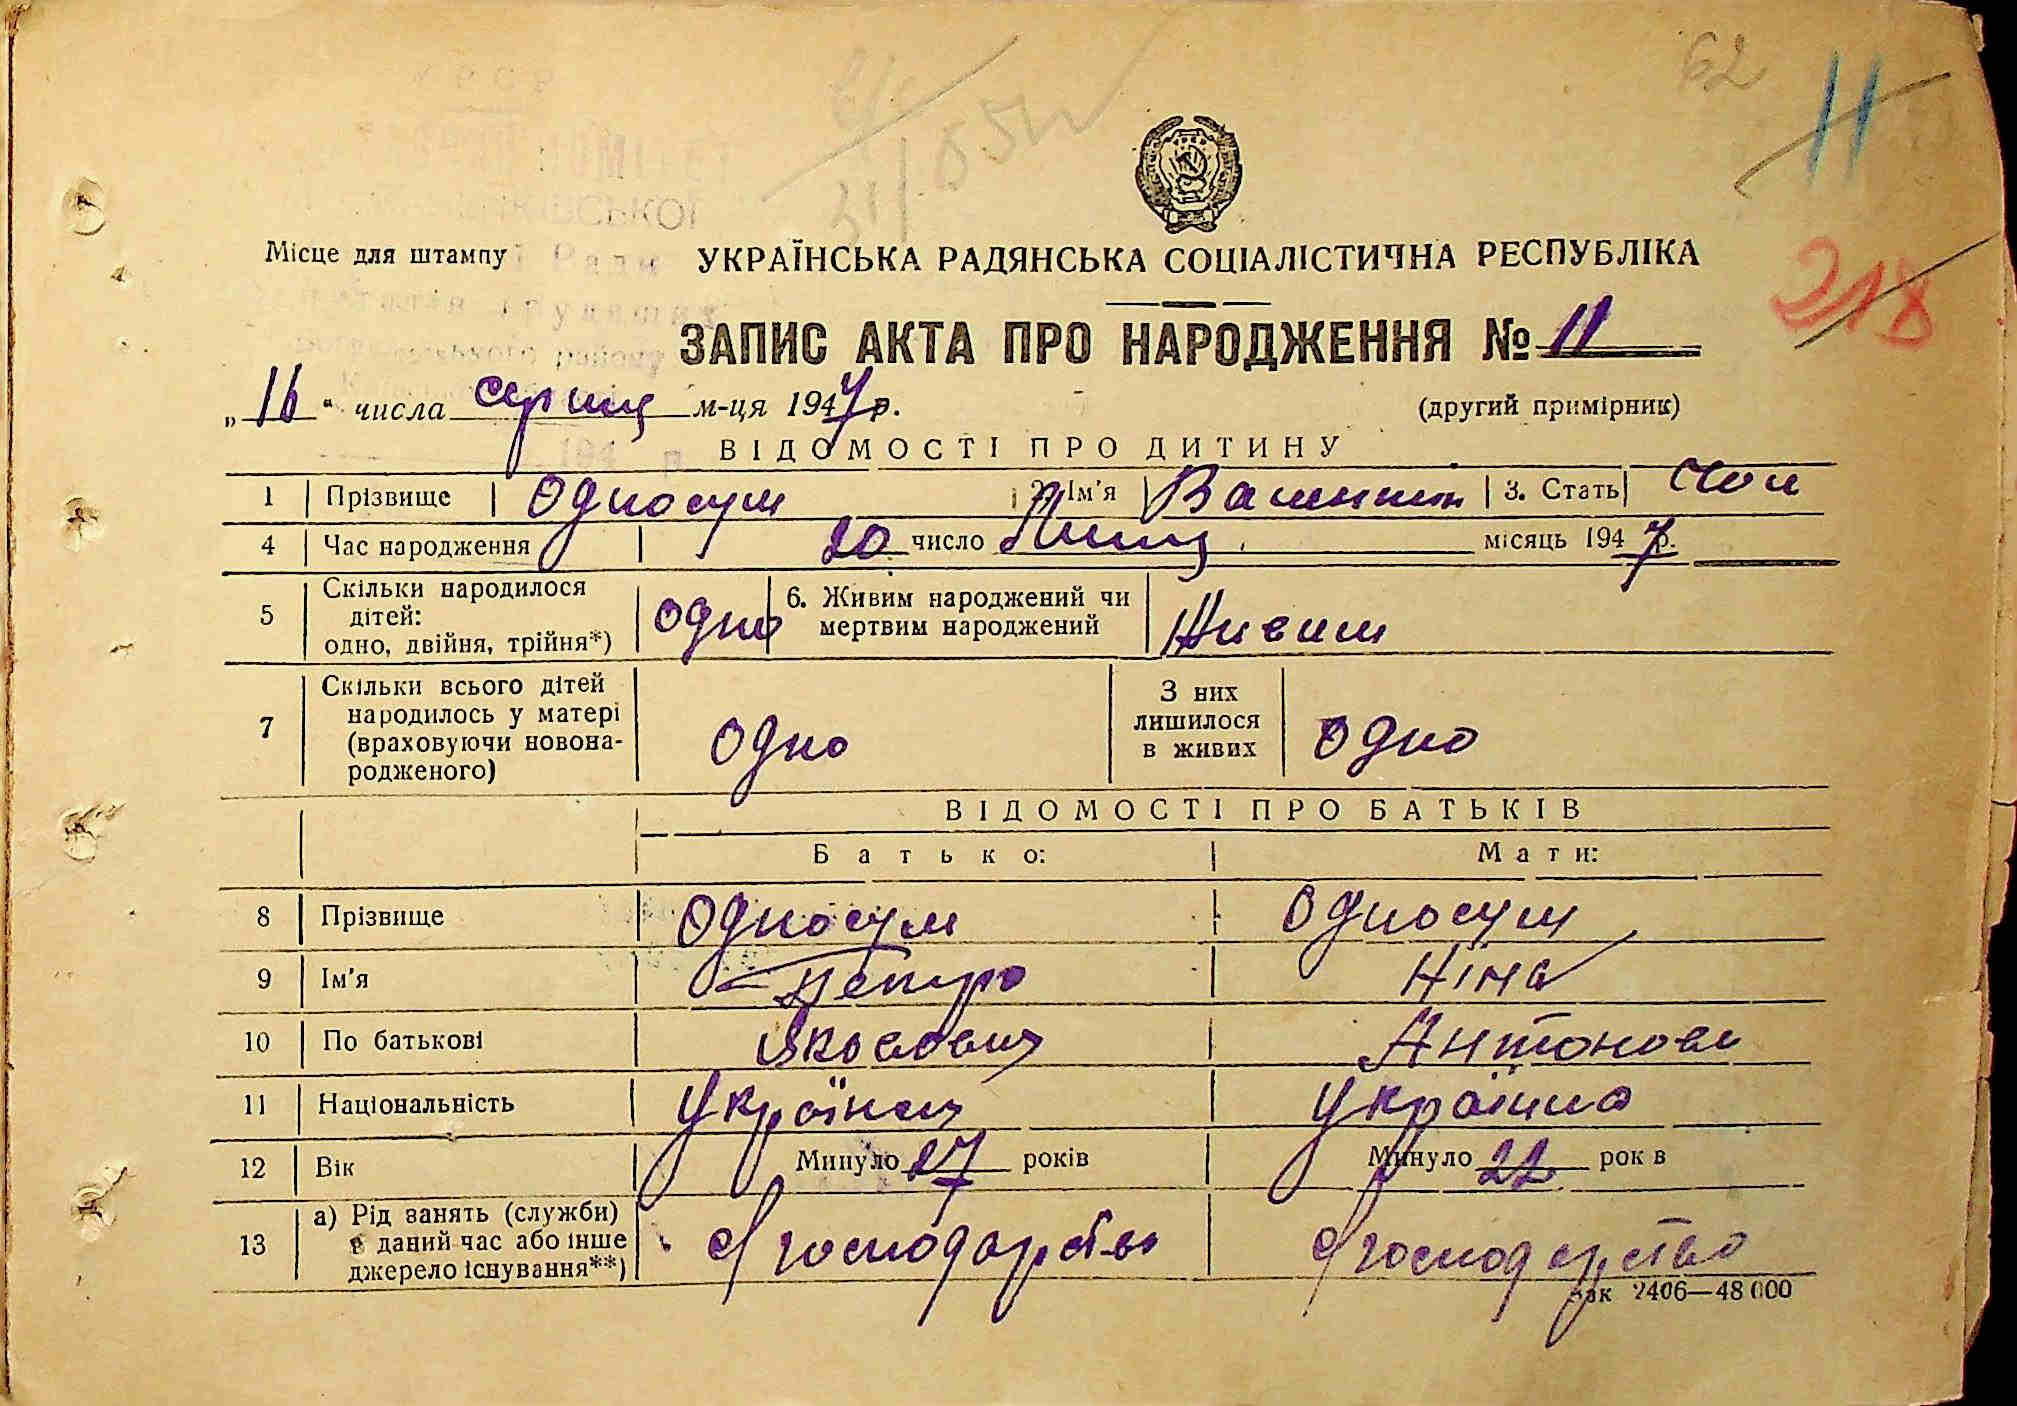 62
11
218
Місце для штампу
УКРАЇНСЬКА РАДЯНСЬКА СОЦІАЛІСТИЧНА РЕСПУБЛІКА
ЗАПИС АКТА ПРО НАРОДЖЕННЯ № 11
„16“ числа серпня м-ця 1947 р.
(другий примірник)
ВІДОМОСТІ ПРО ДИТИНУ
1 Прізвище Односум 2. Ім'я 3. Стать Чол
4 Час народження 20 число Липня місяць 1947 р.
5 Скільки народилося дітей: одно, двійня, трійня*) Одно 6. Живим народжений чи мертвим народжений Живим
7 Скільки всього дітей народилось у матері (враховуючи новонародженого) Одно З них лишилося в живих Одно
ВІДОМОСТІ ПРО БАТЬКІВ
Батько: Мати:
8 Прізвище Односум Односум
9 Ім'я Петро Ніна
10 По батькові Антонова
11 Національність Українец Українка
12 Вік Минуло 27 років Минуло 22 рок в
13 а) Рід занять (служби) в даний час або інше джерело існування**) С/господарство С/господарство
Зак 2406—48 000